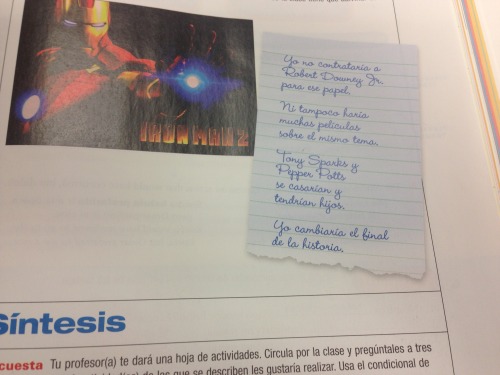 IRON MAN 2
Yo no contrataría a
Robert Downey Jr.
para ese papel.
Ni tampoco haría
muchas películas
sobre el mismo tema.
Tony Sparks y
Pepper Potts
se casarían y
tendrían hijos.
Yo cambiaría el final
de la historia.
Síntesis
cuesta Tu profesor(a) te dará una hoja de actividades. Circula por la clase y pregúntales a tres
de las que se describen les gustaría realizar. Usa el condicional de